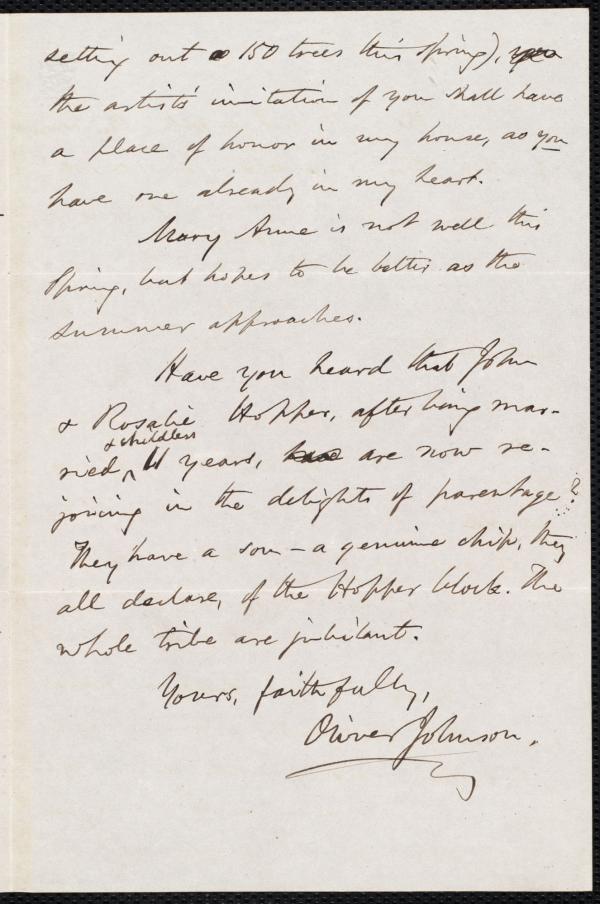 setting out 150 trees this spring),
the artist's imitation of you shall have
a place of honor in my house, as you
have one already in my heart.
Mary Anne is not well this
Spring, but hopes to be better as the
summer approaches.
Have you heard that John
& Rosalie Hopper, after being mar-
& childless
ried 11 years, are now re-
joicing in the delights of parentage?
They have a son – a genuine chip, they
all declare, of the Hopper block. The
whole tribe are jubilant.
Yours, faithfully,
Oliver Johnson.